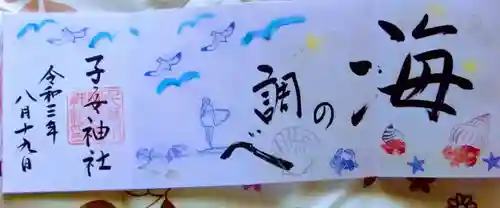 海
の
調べ
子安神社
令和三年
八月十九日